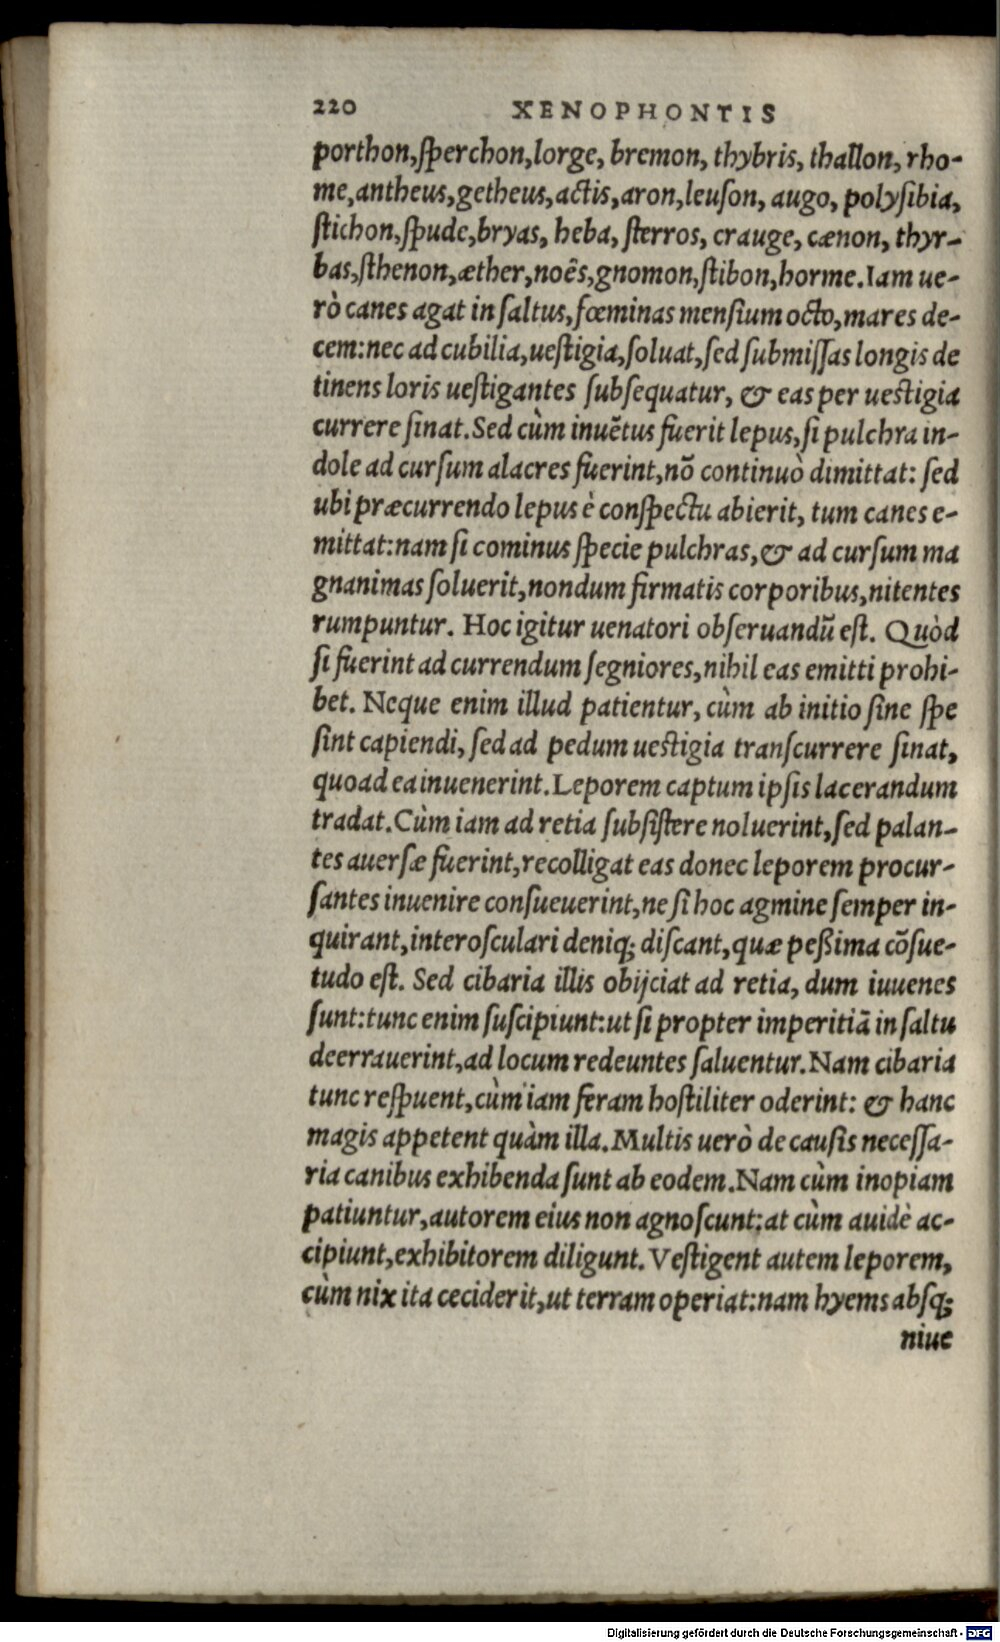 220 XENOPHONTIS
porthon,ſperchon,lorge, bremon, thybris, thallon, rho-
me,antheus,getheus,actis,aron,leuſon, augo, polyſibia,
ſtichon,ſpude,bryas, heba, ſterros, crauge, cænon, thyr-
bas,ſthenon,æther,noẽs,gnomon,ſtibon,horme.Iam ue-
rò canes agat in ſaltus,fœminas menſium octo,mares de-
cem:nec ad cubilia,ueſtigia,ſoluat,ſed ſubmiſſas longis de
tinens loris ueſtigantes ſubſequatur, & eas per ueſtigia
currere ſinat.Sed cùm inuẽtus fuerit lepus,ſi pulchra in-
dole ad curſum alacres fuerint,nõ continuò dimittat: ſed
ubi præcurrendo lepus è conſpectu abierit, tum canes e-
mittat:nam ſi cominus ſpecie pulchras,& ad curſum ma
gnanimas ſoluerit,nondum firmatis corporibus,nitentes
rumpuntur. Hoc igitur uenatori obſeruandũ eſt. Quòd
ſi fuerint ad currendum ſegniores,nihil eas emitti prohi-
bet. Neque enim illud patientur, cùm ab initio ſine ſpe
ſint capiendi, ſed ad pedum ueſtigia tranſcurrere ſinat,
quoad ea inuenerint.Leporem captum ipſis lacerandum
tradat.Cùm iam ad retia ſubſiſtere noluerint,ſed palan-
tes auerſæ fuerint,recolligat eas donec leporem procur-
ſantes inuenire conſueuerint,ne ſi hoc agmine ſemper in-
quirant,interoſculari deniq; diſcant,quæ peßima cõſue-
tudo eſt. Sed cibaria illis obijciat ad retia, dum iuuenes
ſunt:tunc enim ſuſcipiunt:ut ſi propter imperitiã in ſaltu
deerrauerint,ad locum redeuntes ſaluentur.Nam cibaria
tunc reſpuent,cùm iam feram hoſtiliter oderint: & hanc
magis appetent quàm illa.Multis uerò de cauſis neceſſa-
ria canibus exhibenda ſunt ab eodem.Nam cùm inopiam
patiuntur,autorem eius non agnoſcunt:at cùm auidè ac-
cipiunt,exhibitorem diligunt.Veſtigent autem leporem,
cùm nix ita ceciderit,ut terram operiat:nam hyems abſq;
niue
Digitalisierung gefördert durch die Deutsche Forschungsgemeinschaft - DFG